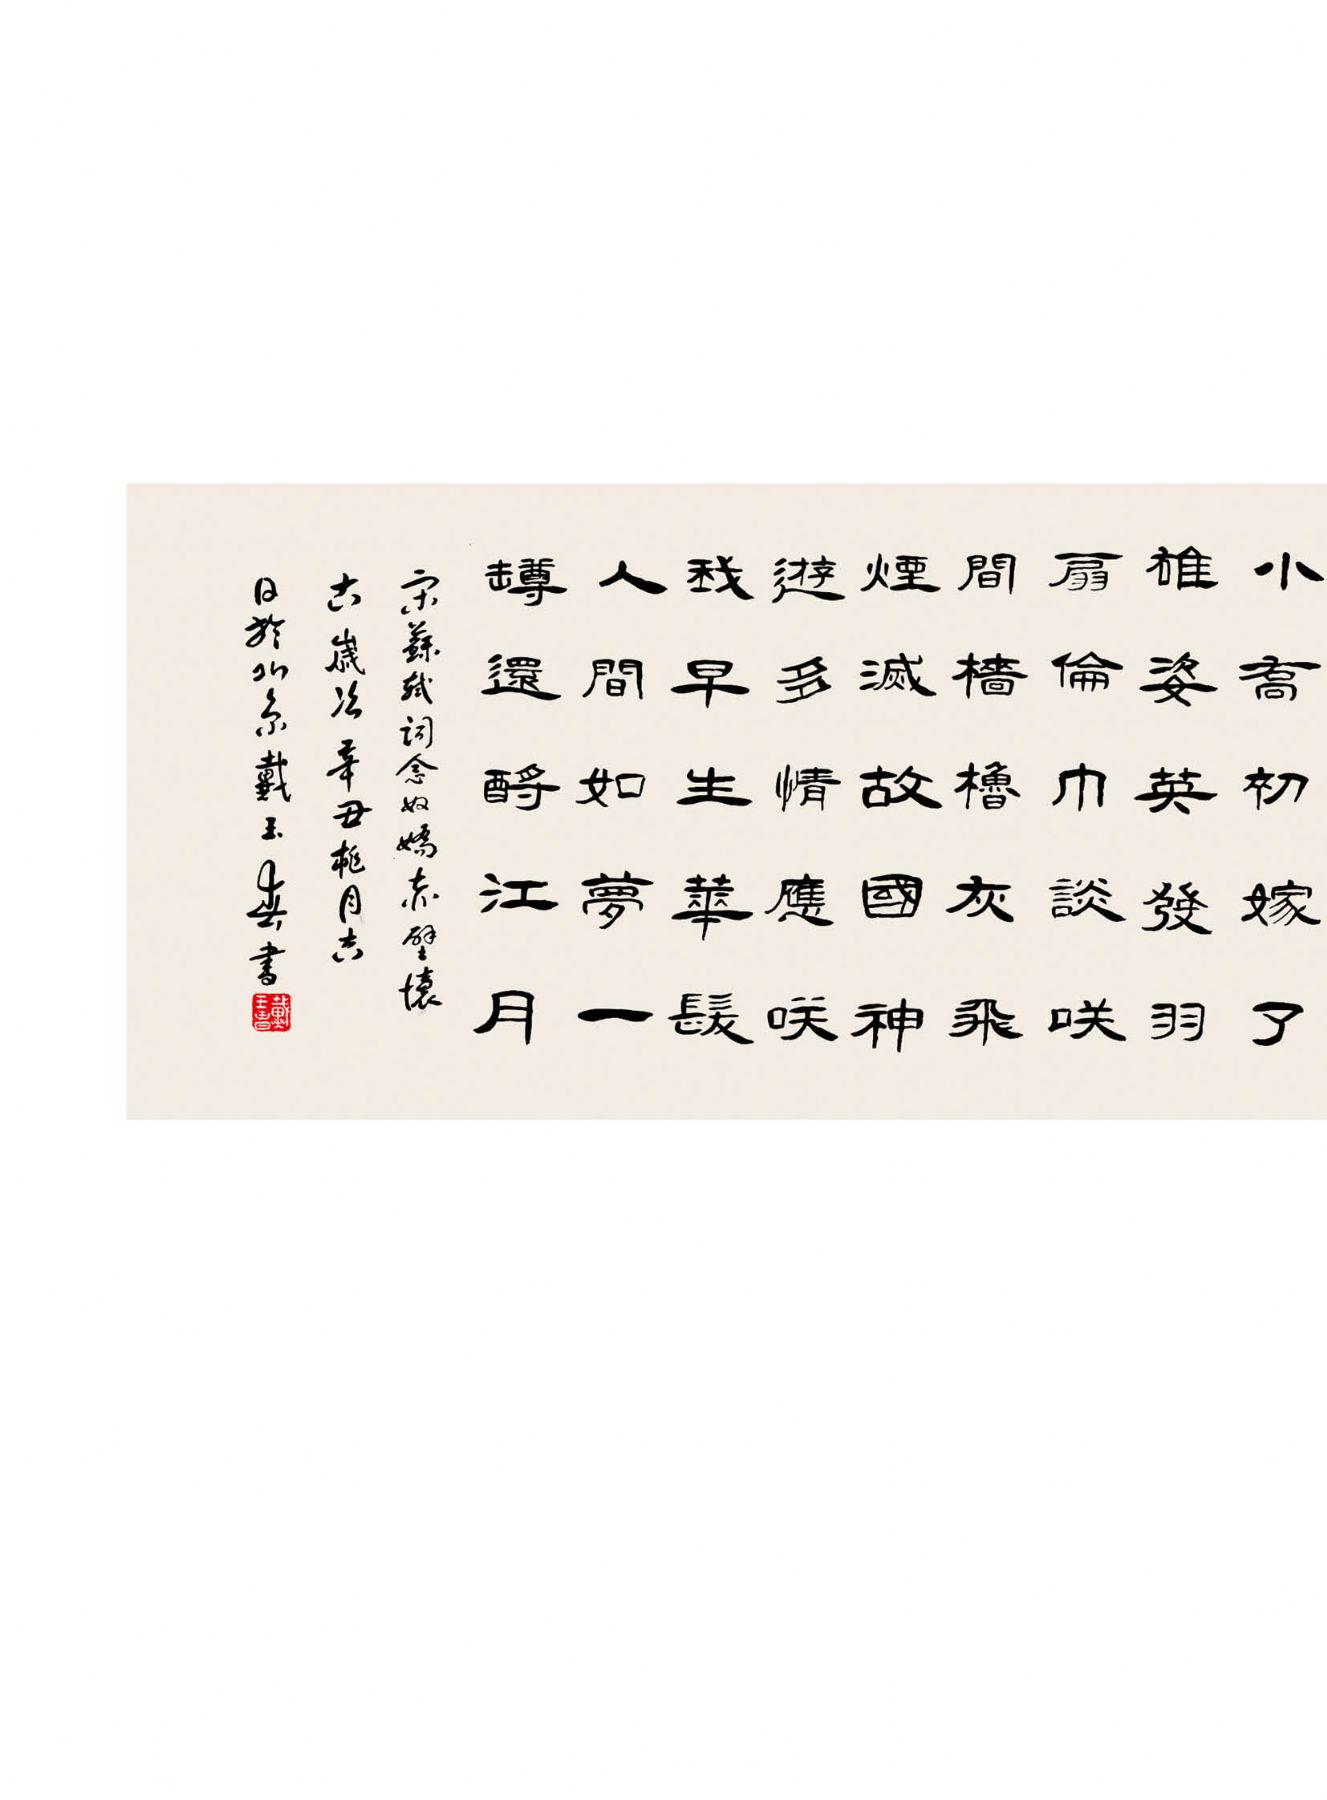 小喬初嫁了
雄姿英發羽
扇倫巾談咲
間檣櫓灰飛
煙滅故國神
遊多情應咲
我早生華髮
人間如夢一
罇還酹江月
宋蘇軾詞念奴嬌赤壁懷
古歲次辛丑桃月吉
日於北京戴玉春書